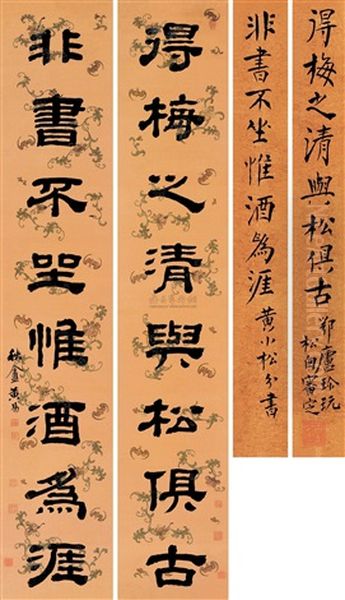 得梅之清與松俱古
非書不坐惟酒爲涯
秋盦黃易
得梅之清與松俱古
松自審定
非書不坐惟酒爲涯 黃小松分書